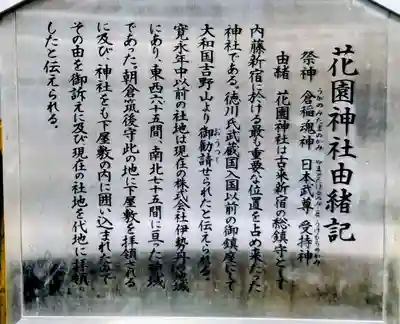 花園神社由緒記
祭神 倉稲魂神 日本武尊 受持神
うがのみたまのかみ やまとたけるのみこと うけもちのかみ
由緒 花園神社は古来新宿の総鎮守として
内藤新宿に於ける最も重要な位置を占め来たった
神社である。徳川氏武蔵国入国以前の御鎮座にして
大和国吉野山より御勧請せられたと伝えられる。
寛永年中以前の社地は現在の株式会社伊勢丹の地域
にあり、東西六十五間、南北七十五間に亘った
であった。朝倉筑後守此の地に下屋敷を拝領される
に及び、神社をも下屋敷の内に囲い込まれたので
その由を御訴えに及び現在の社地を代地に拝領
したと伝えられる。